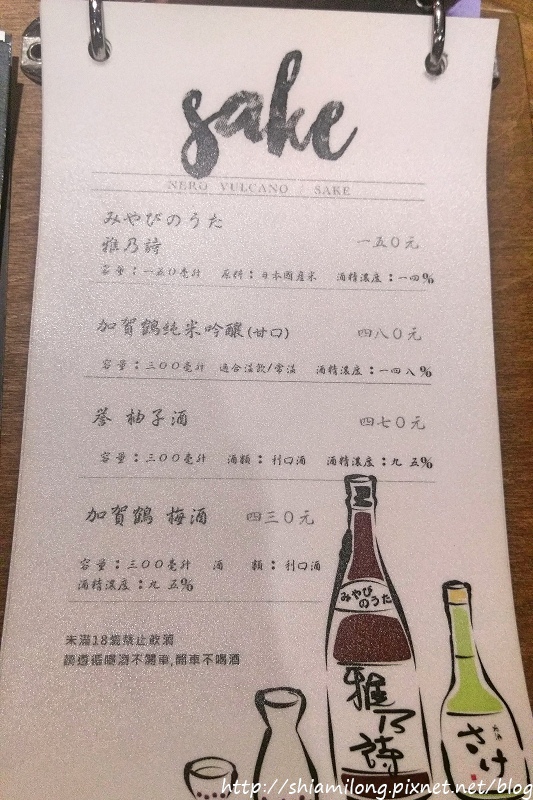 sake
NERO VULCANO / SAKE
みやびのうた
雅乃詩 一五〇元
容量：一五〇毫升 原料：日本國産米 酒精濃度：一四%
加賀鶴純米吟釀(甘口) 四八〇元
容量：三〇〇毫升 適合溫飲/常溫 酒精濃度：一四八%
誉 柚子酒 四七〇元
容量：三〇〇毫升 酒類：利口酒 酒精濃度：九 五%
加賀鶴 梅酒 四三〇元
容量：三〇〇毫升 酒 類：利口酒
酒精濃度：九 五%
未滿18歲禁止飲酒
請遵循喝酒不開車,開車不喝酒
みやび
のうた
雅乃詩
お酒
さけ
http://shiamilong.pixnet.net/blog